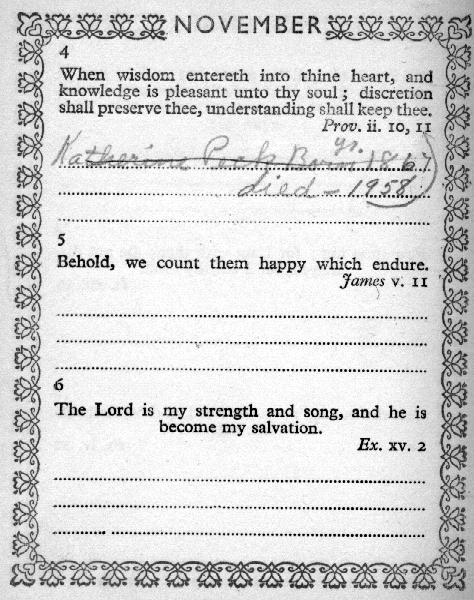 NOVEMBER
4
When wisdom entereth into thine heart, and
knowledge is pleasant unto thy soul; discretion
shall preserve thee, understanding shall keep thee.
Prov. ii. 10, 11
yr.
Katherine Peck Born 1867
died - 1958
5
Behold, we count them happy which endure.
James v. 11
6
The Lord is my strength and song, and he is
become my salvation.
Ex. xv. 2